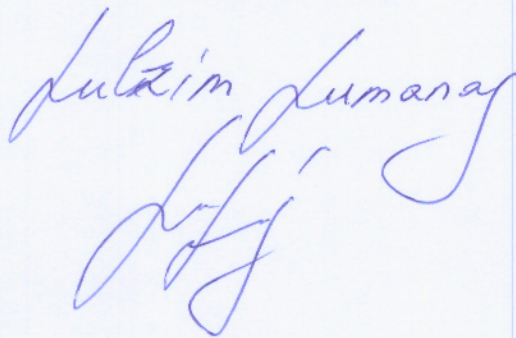 Lulzim Lumanaj